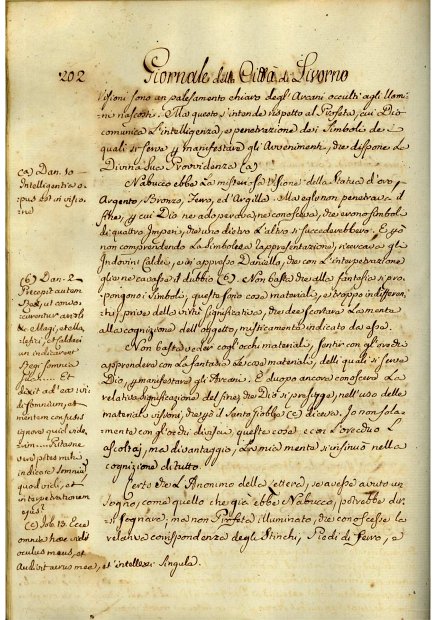 202 Giornale della Città di Livorno
Visioni sono un palesamento chiaro degl'Arcani occulti agli Uomi
ni nascosti. Ma questo s'intende rispetto al Profeta, cui Dio
comunica l'intelligenza, e penetrazione de i Simboli de
quali si serve p manifestare gli Avvenimenti, che dispone la
Divina Sua Provvidenza (a)
Nabucco ebbe la misteriosa visione della Statua d'oro,
Argento, Bronzo, Ferro, ed Argilla. Ma egli non penetrava il
fine, p cui Dio ne adoperava, ne conosceva, che erono simboli
di quattro Imperi, che uno dietro l'altro si succederebbero. E p ciò
non comprendendo la simbolica rapresentazione, ricercava gli
Indovini Caldei, e si appresso Daniello, che con l'interpetrazione
gliene cavasse il dubbio (b). Non basta che alla fantasia si pro-
pongono i Simboli, questi sono cose materiali, e troppo indifferen
ti, prive della virtù significativa, che dee scortare la mente
alla cognizione dell'oggetto, misticamente indicato da essa.
Non basta veder cogl'occhi materiali, sentir con gl'orecchi
apprendere con la fantasia le cose materiali, delli quali si serve
Dio, p manifestare gli Arcani. È d'uopo ancora conoscere la
relativa significazione del fine, che Dio si prefigge, nell'uso delle
materiali visioni, che p ciò il Santo Giobbe (c) diceva. Io non sola-
mente con gl'occhi viddi queste cose e con l'orecchio l'
ascoltai, ma di vantaggio, la mia mente s'insinuò nella
cognizione di tutto.
Certo che l'Anonimo della lettera, se avesse avuto un
sogno, come quello che già ebbe Nabucco, potrebbe dir
si sognare, ma non Profeta illuminato, che conoscesse la
relativa corrispondenza degli Stinchi, Piedi di Ferro, e
(a) Dan. 10
Intelligentia e
opus est in visio
ne
(b) Dan. 2
Precepit autem
Rex, ut convo
carentur arioli
et Magi, et
malefici, et Caldei
ut indicarent
Regi somnia
sua .... Et
dixit ad eos vidi
somnium, et
mentem confusus
ignoro quid vide
rim ....
indicare somnium
quod vidi, et
interpretationem
ejus?
(c) Job. 13. Ecce
omnia haec vidit
oculus meus, et
Audivit auris mea, et intellexi singula.